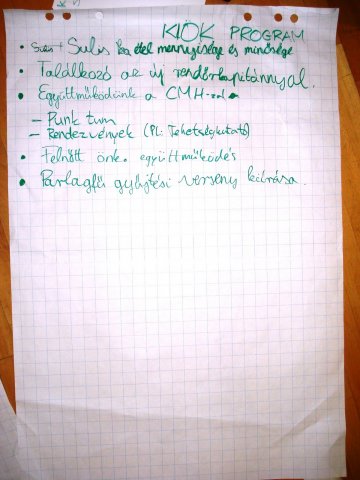 KIÖK PROGRAM
• Sulis étel mennyisége és minősége
• Találkozó az új rendőrkapitánnyal.
• Együttműködünk a CMH-val
– Punk tum
– Rendezvények (Pl: Tehetségkutató)
• Felnőtt önk. együttműködés
• Parlagfű gyűjtési verseny kiírása.